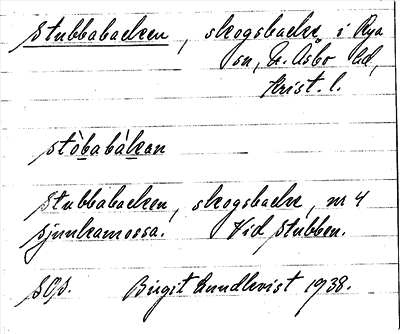 Stubbabacken, skogsbacke i Rya
sn, N. Åsbo hd,
Krist. l.
stòbabàkan
Stubbabacken, skogsbacke, nr 4
Sjunkamossa. Vid Stubben.
Birgit Lundkvist 1938.